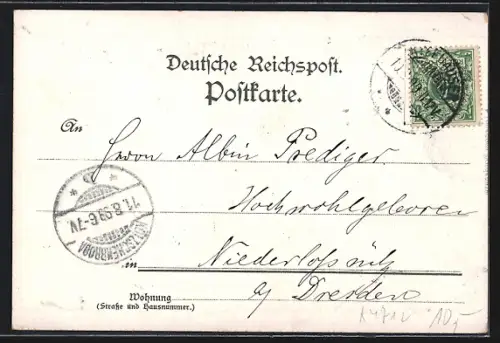 Deutsche Reichspost.
Postkarte.
An
Herrn Albin Prediger
Hochwohlgeboren
in
Niederlößnitz
b/ Dresden
Wohnung
(Straße und Hausnummer.)
KÖTZSCHENBRODA
11.8.99.6-7V.
10,-